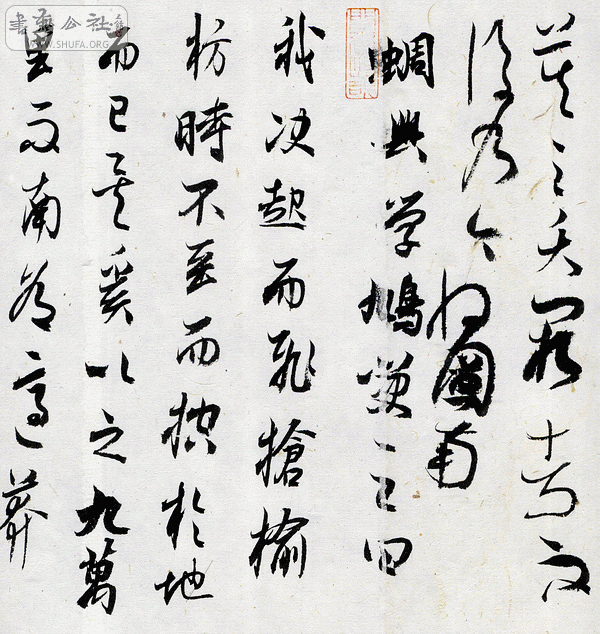 莫之夭閼者而
後乃今將圖南
蜩與学鳩笑之曰
我决起而飛搶榆
枋時不至而控於地
而已矣奚以之九萬
里而南為適莽
書法公社
WWW.SHUFA.ORG